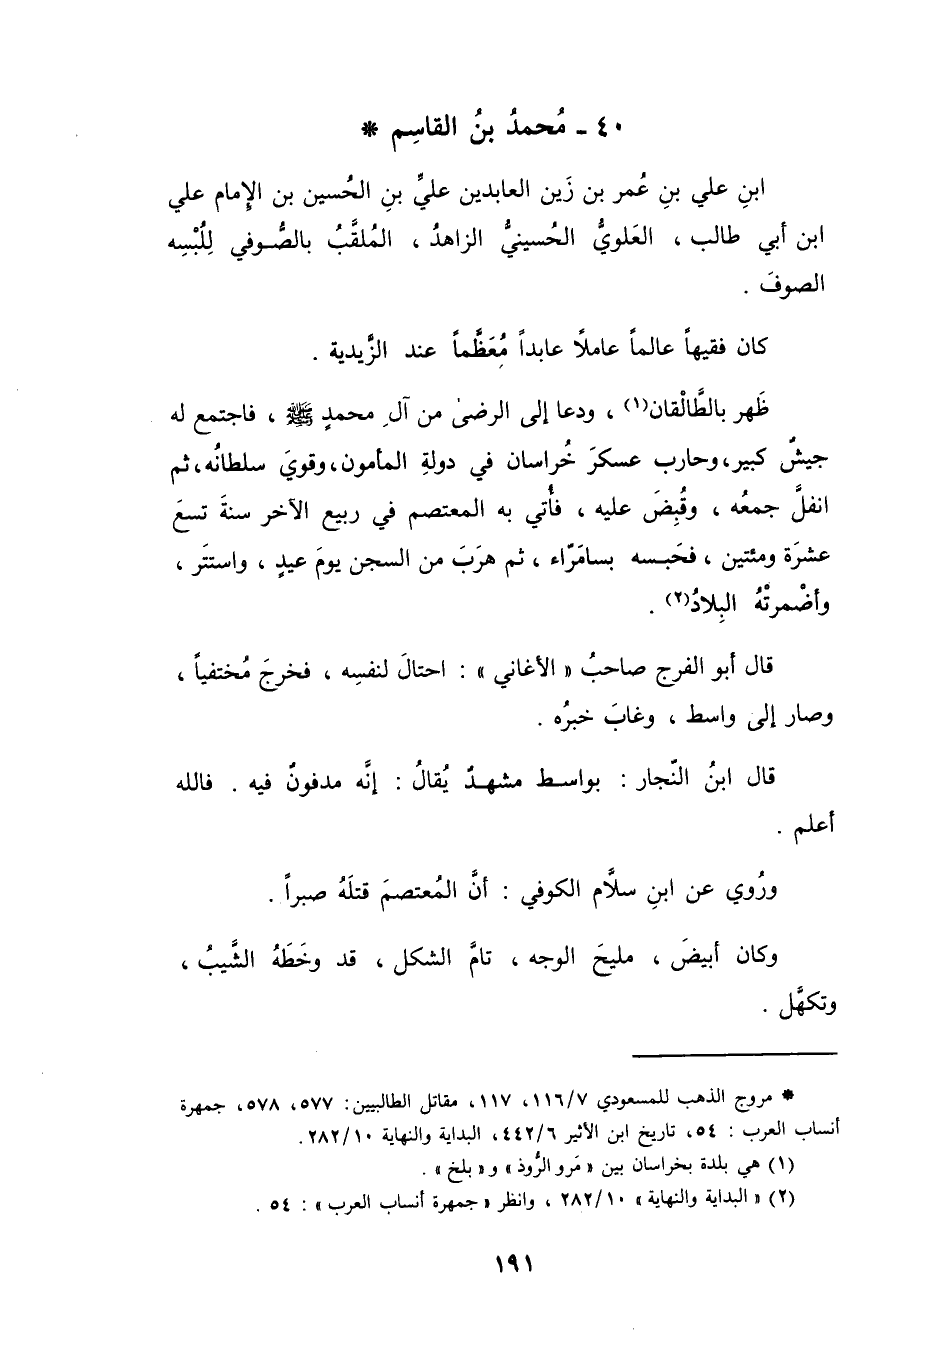 ٤٠ ـ مُحمدُ بنُ القاسِم *
ابنِ علي بنِ عُمر بن زَين العابدين عليِّ بنِ الحُسين بن الإِمام علي
ابن أبي طالب ، العَلويُّ الحُسينيُّ الزاهدُ ، المُلقَّبُ بالصُّوفي لِلُبْسِه
الصوفَ .
كان فقيهاً عالماً عاملًا عابداً مُعَظَّماً عند الزَّيدية .
ظَهر بالطَّالْقان(١) ، ودعا إلى الرضىٰ من آلِ محمدٍ ﷺ ، فاجتمع له
جيشٌ كبير، وحارب عسكرَ خُراسان في دولةِ المأمون، وقويَ سلطانُه، ثم
انفلَّ جمعُه ، وقُبِضَ عليه ، فأُتي به المعتصم في ربيع الآخر سنةَ تسعَ
عشرَة ومئتين ، فحَبسه بسامَرّاء ، ثم هرَبَ من السجن يومَ عيدٍ ، واستتَر ،
وأضْمرتْهُ البِلادُ(٢) .
قال أبو الفرج صاحبُ « الأغاني » : احتالَ لنفسِه ، فخرجَ مُختفياً ،
وصار إلى واسط ، وغابَ خبرُه .
قال ابنُ النّجار : بواسط مشهدٌ يُقالُ : إنَّه مدفونٌ فيه . فالله
أعلم .
ورُوي عن ابنِ سلَّام الكوفي : أنَّ المُعتصمَ قتلَهُ صبراً .
وكان أبيضَ ، مليحَ الوجه ، تامَّ الشكل ، قد وخَطَهُ الشَّيبُ ،
وتكهَّل .
* مروج الذهب للمسعودي ١١٦/٧، ١١٧، مقاتل الطالبيين: ٥٧٧، ٥٧٨، جمهرة
أنساب العرب : ٥٤، تاريخ ابن الأثير ٤٤٢/٦، البداية والنهاية ٢٨٢/١٠.
(١) هي بلدة بخراسان بين « مَرو الرُّوذ » و« بلخ » .
(٢) « البداية والنهاية » ٢٨٢/١٠ ، وانظر « جمهرة أنساب العرب » : ٥٤ .
١٩١